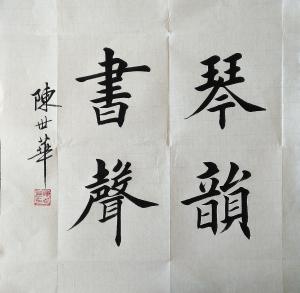 琴韻
書聲
陳世華